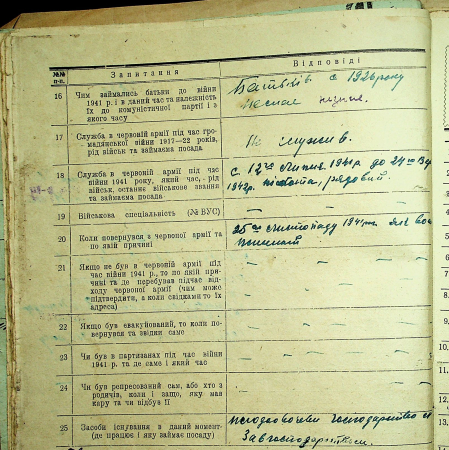 №№ п-п.
Запитання
Відповіді
16
Чим займались батьки до війни
1941 р. і в даний час та належність
їх до комуністичної партії і з
якого часу
Батьків с 1926 року
17
Служба в червоній армії під час гро-
мадянської війни 1917—22 років,
рід військ та займаєма посада
Не служив.
18
Служба в червоній армії під час
війни 1941 року, який час, рід
військ, останнє військове звання
та займаєма посада
с 12го липня 1941 до 24го
1942р. піхота, рядовий.
19
Військова спеціяльність (№ ВУС)
— —
20
Коли повернувся з червоної армії та
по якій причині
25го листопаду 1941
21
Якщо не був в червоній армії під
час війни 1941 р., то по якій при-
чині та де перебував підчас від-
ходу червоної армії (чим може
підтвердити, а коли свідками то їх
адреса)
— — —
22
Якщо був евакуйований, то коли по-
вернувся та звідки саме
— — —
23
Чи був в партизанах під час війни
1941 р. та де саме і який час
— — —
24
Чи був репресований сам, або хто з
родичів, коли і защо, яку мав
кару та чи відбув її
— — —
25
Засоби існування в даний момент
(де працює і яку займає посаду)
господарство
Завгосподарством.
10.
11.
12.
13.
14.